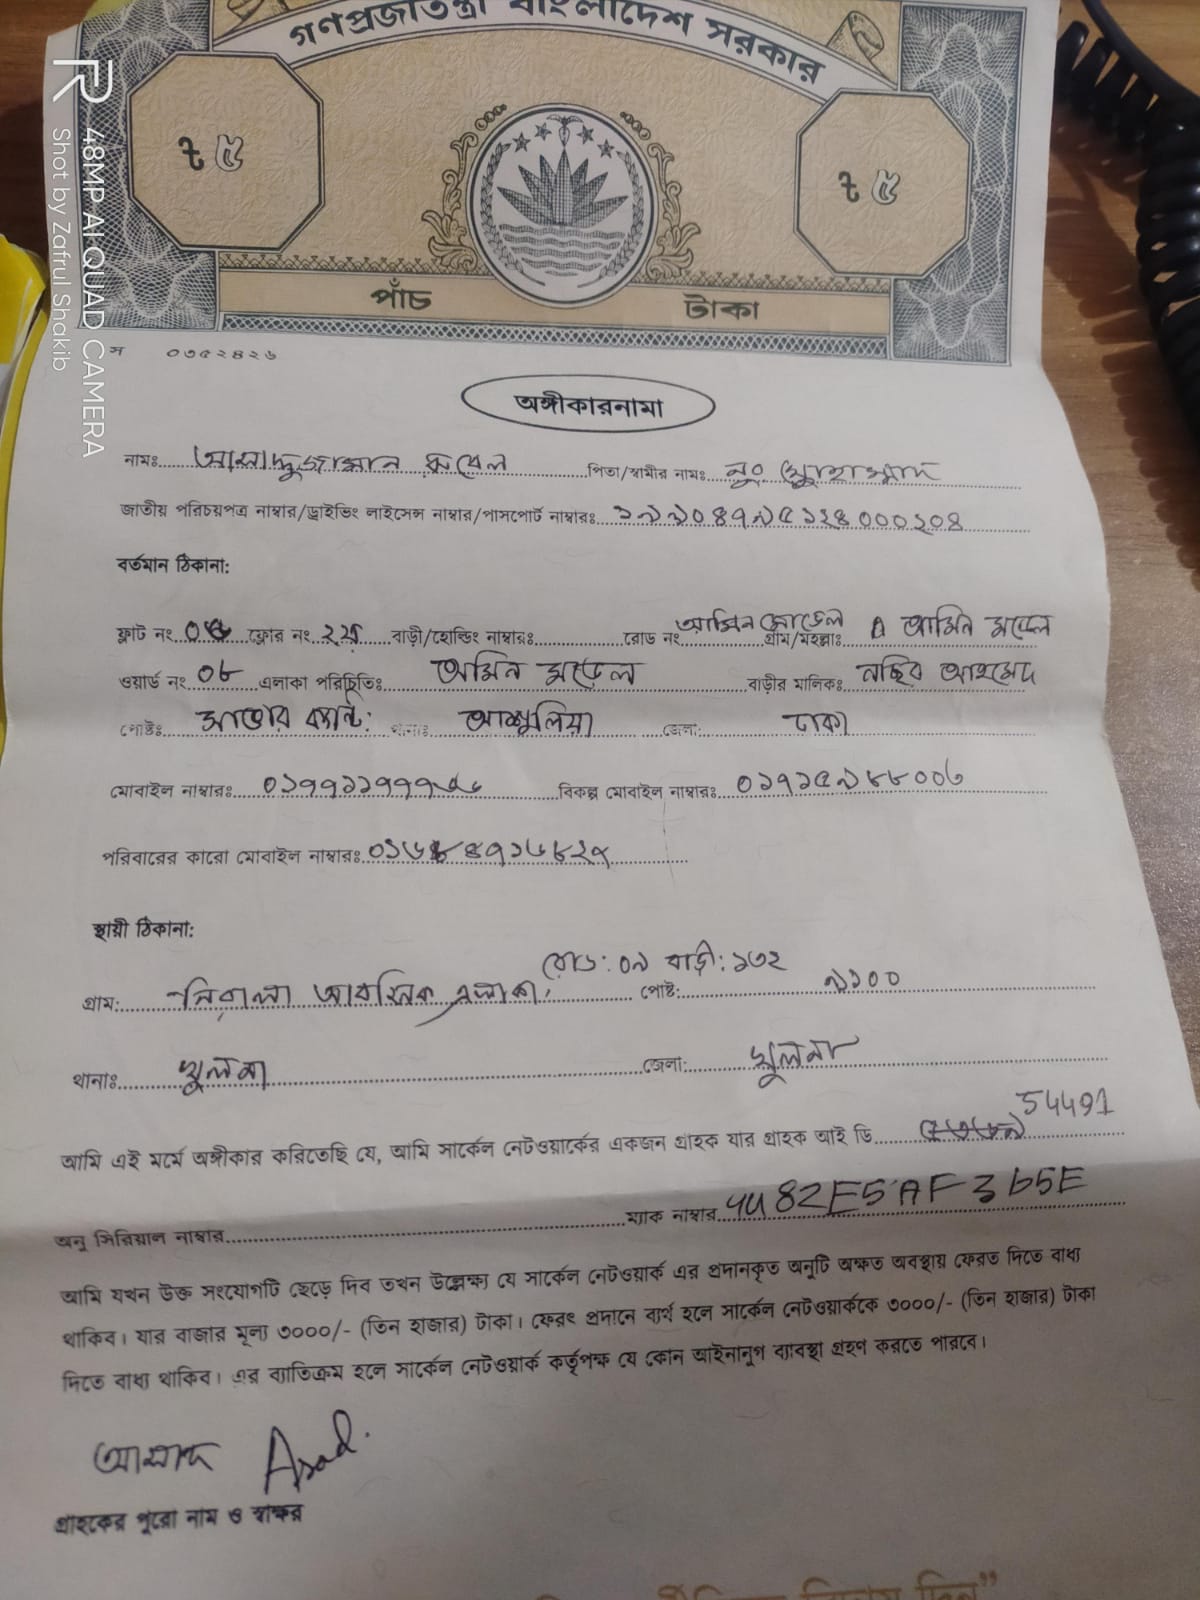 গণপ্রজাতন্ত্রী বাংলাদেশ সরকার
৳ ৫
৳ ৫
পাঁচ টাকা
48MP AI QUAD CAMERA
Shot by Zafrul Shakib
স ০৩৫২৪২৬
অঙ্গীকারনামা
নামঃ আসাদুজ্জামান রুবেল পিতা/স্বামীর নামঃ নুর মুহাম্মাদ
জাতীয় পরিচয়পত্র নাম্বার/ড্রাইভিং লাইসেন্স নাম্বার/পাসপোর্ট নাম্বারঃ ১৯৯০৪৭৯৫১২৪০০০২০৪
বর্তমান ঠিকানা:
ফ্লাট নং ফ্লোর নং ২য় বাড়ী/হোল্ডিং নাম্বারঃ রোড নং আমিন মোডেল গ্রাম/মহল্লাঃ আমিন মডেল
ওয়ার্ড নং ০৮ এলাকা পরিচিতিঃ আমিন মডেল বাড়ীর মালিকঃ নছিব আহমেদ
পোষ্টঃ সাভার ক্যান্ট: থানাঃ আশুলিয়া জেলা: ঢাকা
মোবাইল নাম্বারঃ বিকল্প মোবাইল নাম্বারঃ ০১৭১৫৯৮৮০০৬
পরিবারের কারো মোবাইল নাম্বারঃ
স্থায়ী ঠিকানা:
রোড: ০৯ বাড়ী: ১৩২
গ্রাম: নিরালা আবাসিক এলাকা, পোষ্ট: ৯১০০
থানাঃ খুলনা জেলা: খুলনা
54491
আমি এই মর্মে অঙ্গীকার করিতেছি যে, আমি সার্কেল নেটওয়ার্কের একজন গ্রাহক যার গ্রাহক আই ডি
অনু সিরিয়াল নাম্বার ম্যাক নাম্বার
আমি যখন উক্ত সংযোগটি ছেড়ে দিব তখন উল্লেক্ষ্য যে সার্কেল নেটওয়ার্ক এর প্রদানকৃত অনুটি অক্ষত অবস্থায় ফেরত দিতে বাধ্য
থাকিব। যার বাজার মূল্য ৩০০০/- (তিন হাজার) টাকা। ফেরৎ প্রদানে ব্যর্থ হলে সার্কেল নেটওয়ার্ককে ৩০০০/- (তিন হাজার) টাকা
দিতে বাধ্য থাকিব। এর ব্যাতিক্রম হলে সার্কেল নেটওয়ার্ক কর্তৃপক্ষ যে কোন আইনানুগ ব্যাবস্থা গ্রহণ করতে পারবে।
আসাদ Asad.
গ্রাহকের পুরো নাম ও স্বাক্ষর